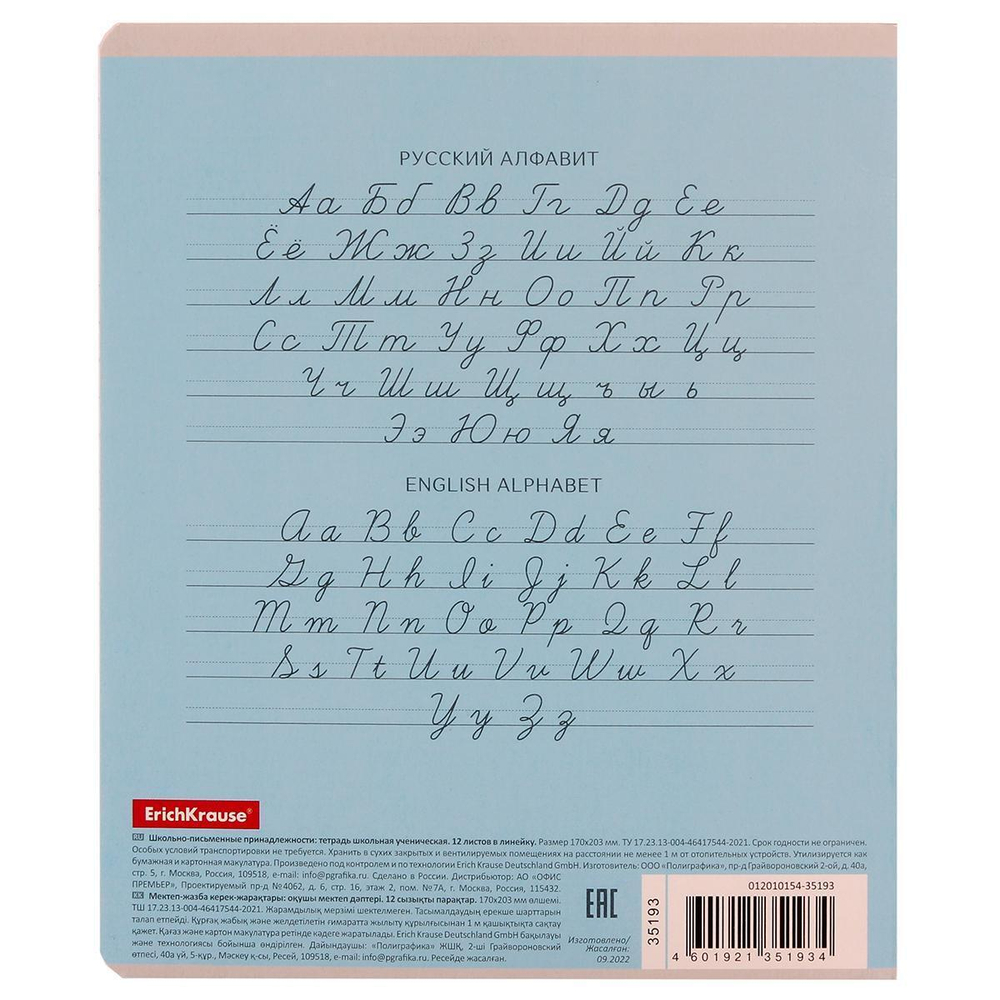 РУССКИЙ АЛФАВИТ
Аа Бб Вв Гг Дд Ее
Ёё Жж Зз Ии Йй Кк
Лл Мм Нн Оо Пп Рр
Сс Тт Уу Фф Хх Цц
Чч Шш Щщ ъ ы ь
Ээ Юю Яя
ENGLISH ALPHABET
Aa Bb Cc Dd Ee Ff
Gg Hh Ii Jj Kk Ll
Mm Nn Oo Pp Qq Rr
Ss Tt Uu Vv Ww Xx
Yy Zz
ErichKrause®
RU Школьно-письменные принадлежности: тетрадь школьная ученическая. 12 листов в линейку. Размер 170х203 мм. ТУ 17.23.13-004-46417544-2021. Срок годности не ограничен.
Особых условий транспортировки не требуется. Хранить в сухих закрытых и вентилируемых помещениях на расстоянии не менее 1 м от отопительных устройств. Утилизируется как
бумажная и картонная макулатура. Произведено под контролем и по технологии Erich Krause Deutschland GmbH. Изготовитель: ООО «Полиграфика», пр-д Грайвороновский 2-ой, д. 40а,
стр. 5, г. Москва, Россия, 109518, e-mail: info@pgrafika.ru. Сделано в России. Дистрибьютор: АО «ОФИС
ПРЕМЬЕР», Проектируемый пр-д №4062, д. 6, стр. 16, этаж 2, пом. №7А, г. Москва, Россия, 115432.
KK Мектеп-жазба керек-жарақтары: оқушы мектеп дәптері. 12 сызықты парақтар. 170х203 мм өлшемі.
ТШ 17.23.13-004-46417544-2021. Жарамдылық мерзімі шектелмеген. Тасымалдаудың ерекше шарттарын
талап етпейді. Құрғақ жабық және желдетілетін ғимаратта жылыту құрылғысынан 1 м қашықтықта сақтау
қажет. Қағаз және картон макулатура ретінде кәдеге жаратылады. Erich Krause Deutschland GmbH бақылауы
және технологиясы бойынша өндірілген. Дайындаушы: «Полиграфика» ЖШҚ, 2-ші Грайвороновский
өтпесі, 40а үй, 5-құр., Мәскеу қ-сы, Ресей, 109518, e-mail: info@pgrafika.ru. Ресейде жасалған.
EAC
Изготовлено/
Жасалған:
09.2022
35193
012010154-35193
4 601921 351934